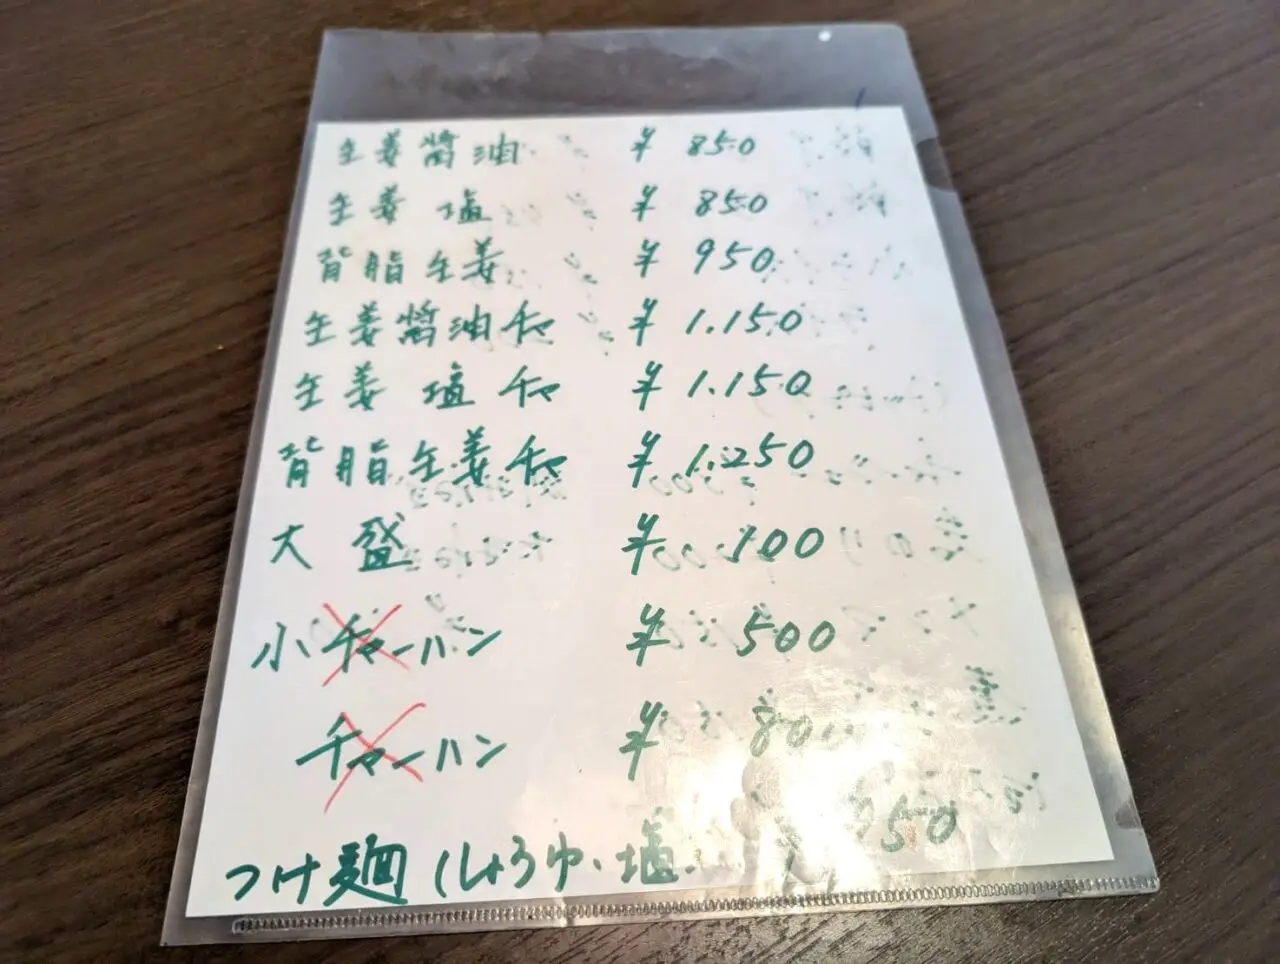 生姜醤油 ¥ 850
生姜 塩 ¥ 850
背脂生姜 ¥ 950
生姜醤油チャ ¥ 1.150
生姜 塩 チャ ¥ 1.150
背脂生姜チャ ¥ 1.250
大 盛 ¥ 100
小 チャーハン ¥ 500
チャーハン ¥ 80
つけ麺 (しょうゆ・塩 50